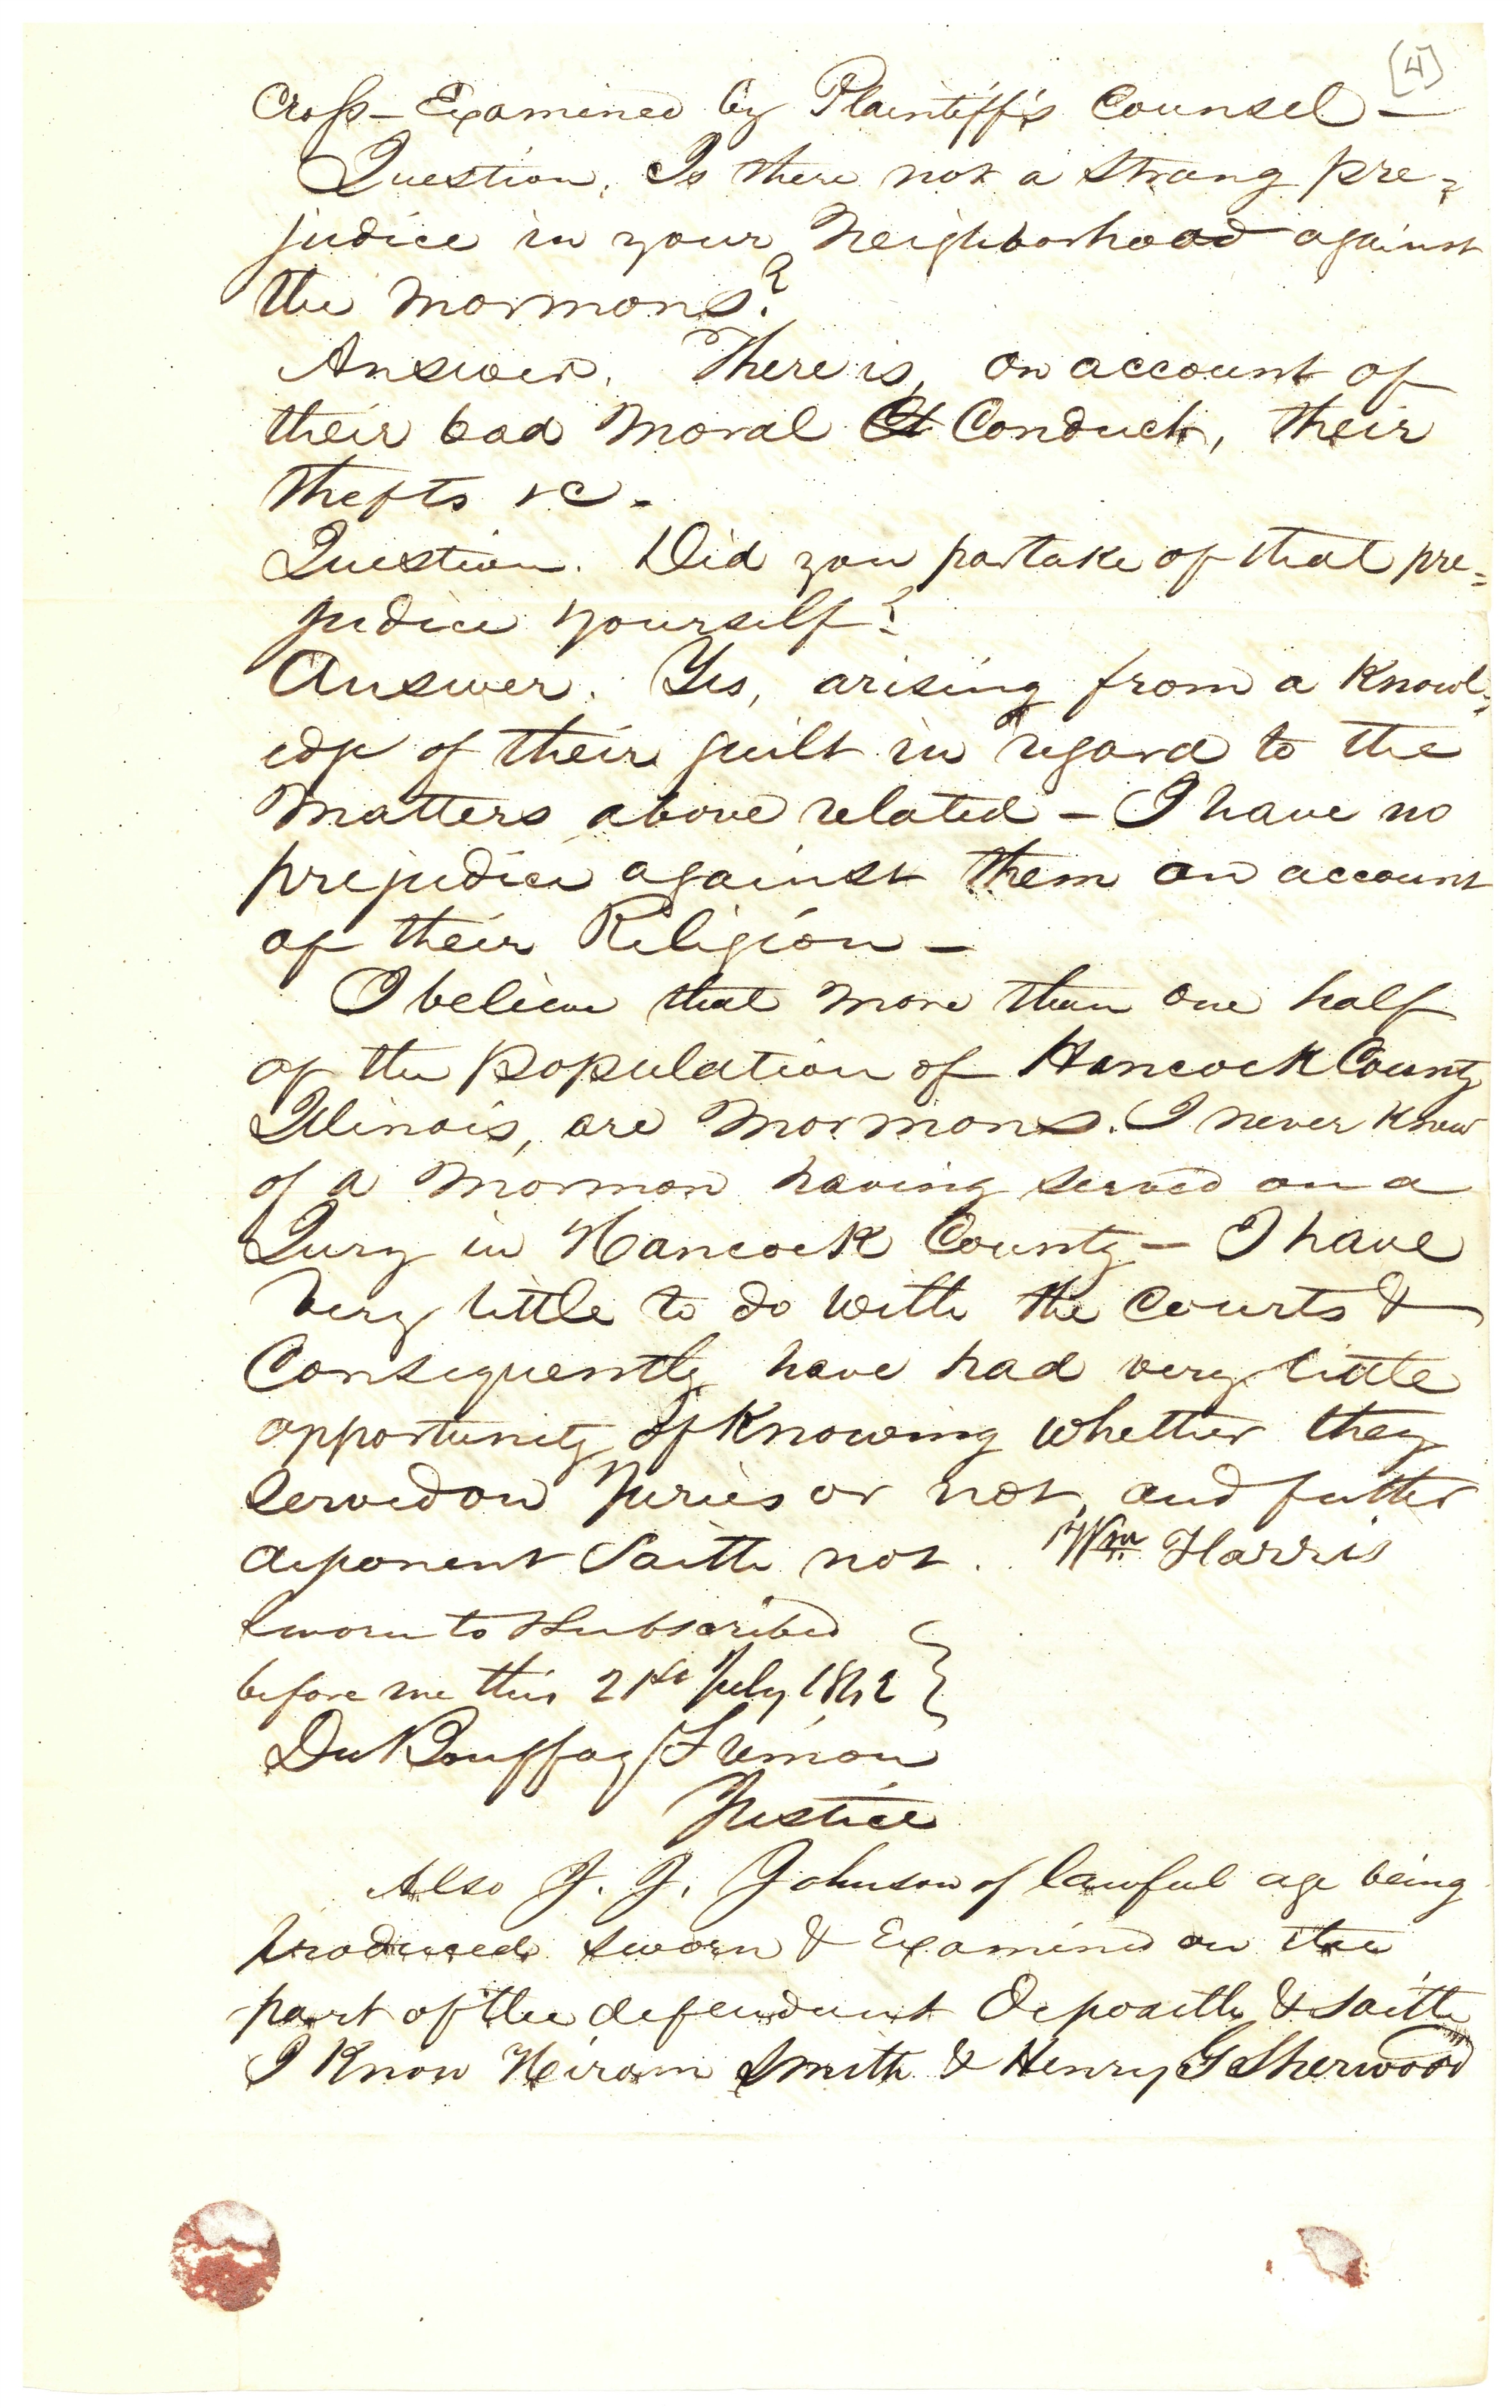 [4]
Cross-Examined by Plaintiff's Counsel —
Question. Is there not a strong pre=
judice in your Neighborhood against
the Mormons?
Answer. There is, on account of
their bad Moral Ch Conduct, their
thefts &c -
Question. Did you partake of that pre=
judice yourself?
Answer. Yes, arising from a Knowl=
edge of their guilt in regard to the
Matters above related - I have no
prejudice against them on account
of their Religion -
I believe that more than one half
of the population of Hancock County
Illinois, are Mormons. I never knew
of a Mormon having served on a
Jury in Hancock County - I have
very little to do with the Courts &
Consequently have had very little
opportunity of Knowing whether they
served on Juries or not, and futher
deponent Saith not. Wm Harris
Sworn to & Subscribed
before me this 21st July 1842
Du Bouffay Fremon
Justice
Also J. J. Johnson of lawful age being
produced sworn & Examined on the
part of the defendant Deposeth & saith
I Know Hiram Smith & Henry G Sherwood